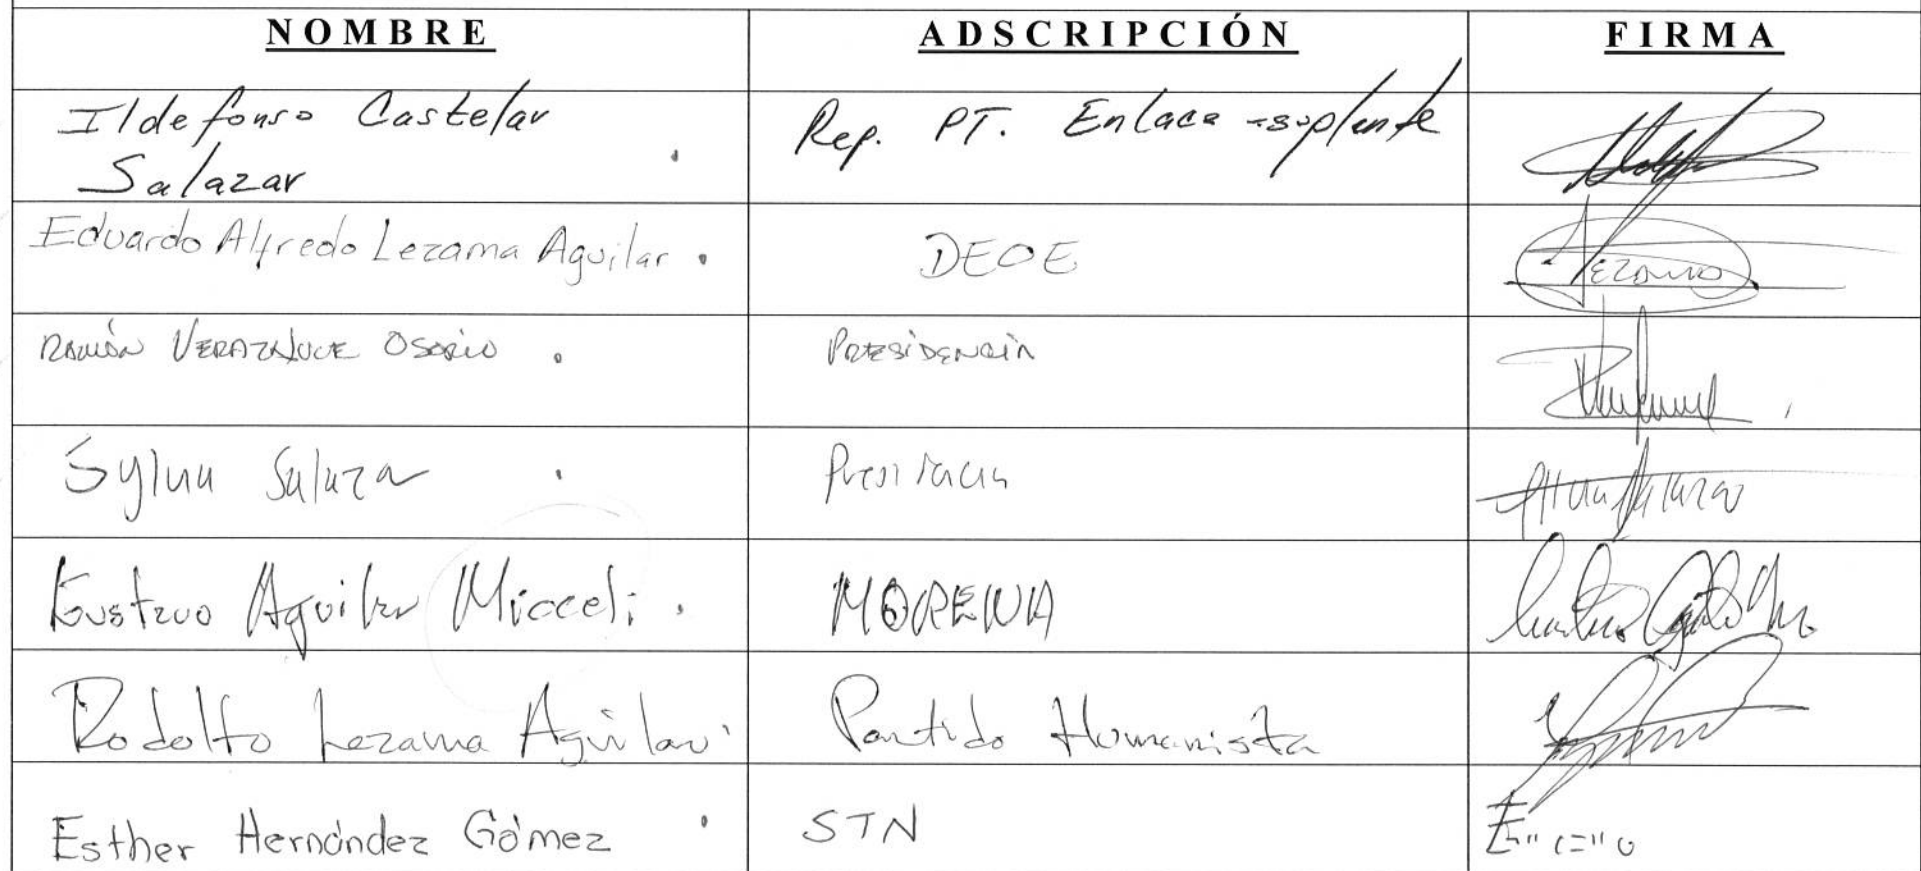 NOMBRE ADSCRIPCIÓN FIRMA
Ildefonso Castelar Rep. PT. Enlace suplente
Salazar
Eduardo Alfredo Lezama Aguilar. DEOE Lezama
RAMÓN OSORIO. PRESIDENCIA
Sylvia Salazar. Presidencia
Gustavo Aguilar Micceli. MORENA
Rodolfo Lezama Aguilar Partido Humanista
Esther Hernández Gómez STN